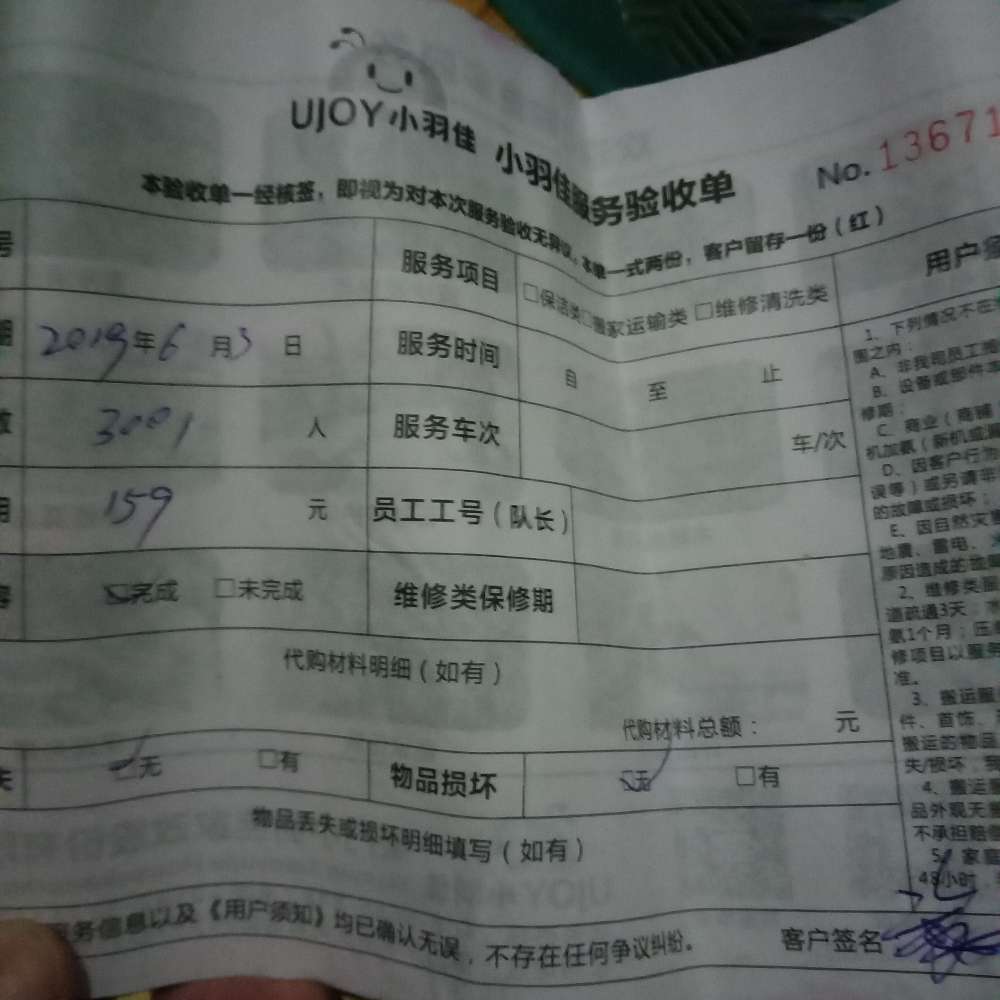 UJOY小羽佳 小羽佳服务验收单 No. 13671
本验收单一经核签，即视为对本次服务验收无异议，本单一式两份，客户留存一份（红）
号 服务项目 □保洁类□搬家运输类 □维修清洗类
期 2019年6月3日 服务时间 自 至 止
数 3001 人 服务车次 车/次
用 159 元 员工工号（队长）
容 完成 □未完成 维修类保修期
代购材料明细（如有）
代购材料总额： 元
失 无 □有 物品损坏 无 □有
物品丢失或损坏明细填写（如有）
务信息以及《用户须知》均已确认无误，不存在任何争议纠纷。 客户签名
用户须
1、下列情况不在
围之内：
A、非我司员工
B、设备或部件
修期；
C、商业（商铺
机加氨（新机或漏
D、因客户行为
误等）或另请非
的故障或损坏；
E、因自然灾害
地震、雷电、
原因造成的地
2、维修类服
道疏通3天；
氨1个月；压
修项目以服务
准。
3、搬运服
件、首饰、
搬运的物品
失/损坏，我
4、搬运服
品外观无
不承担赔偿
5、家庭
48小时